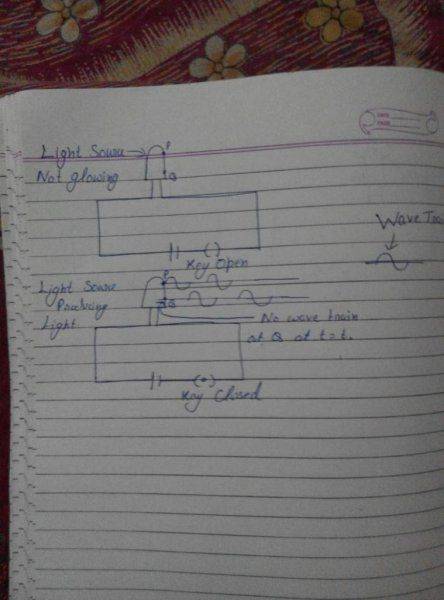 Light Sourse
P
Not glowing
Q
Wave Trai
Key Open
Light Sourse
P
Producing
Q
Light
No wave train
at Q at t=t₁
Key Closed